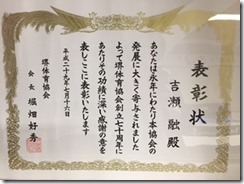 表彰状
吉瀬 融殿
あなたは永年にわたり本協会の
発展に大きく寄与されました
よって堺体育協会創立七十周年に
あたりその功績に深い感謝の意を
表しここに表彰いたします
平成二十九年七月十六日
堺体育協会
会長 堀畑好秀